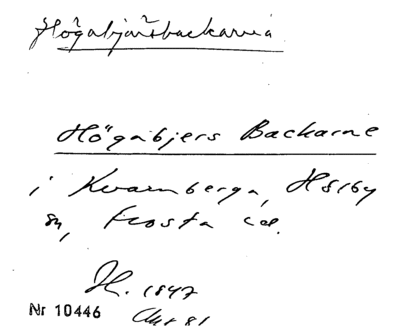 Högabjärsbackarna
Högabjers Backarne
i Kvarnberga, Hörby
sn, Frosta hd.
H. 1847
Akt 81
Nr 10446